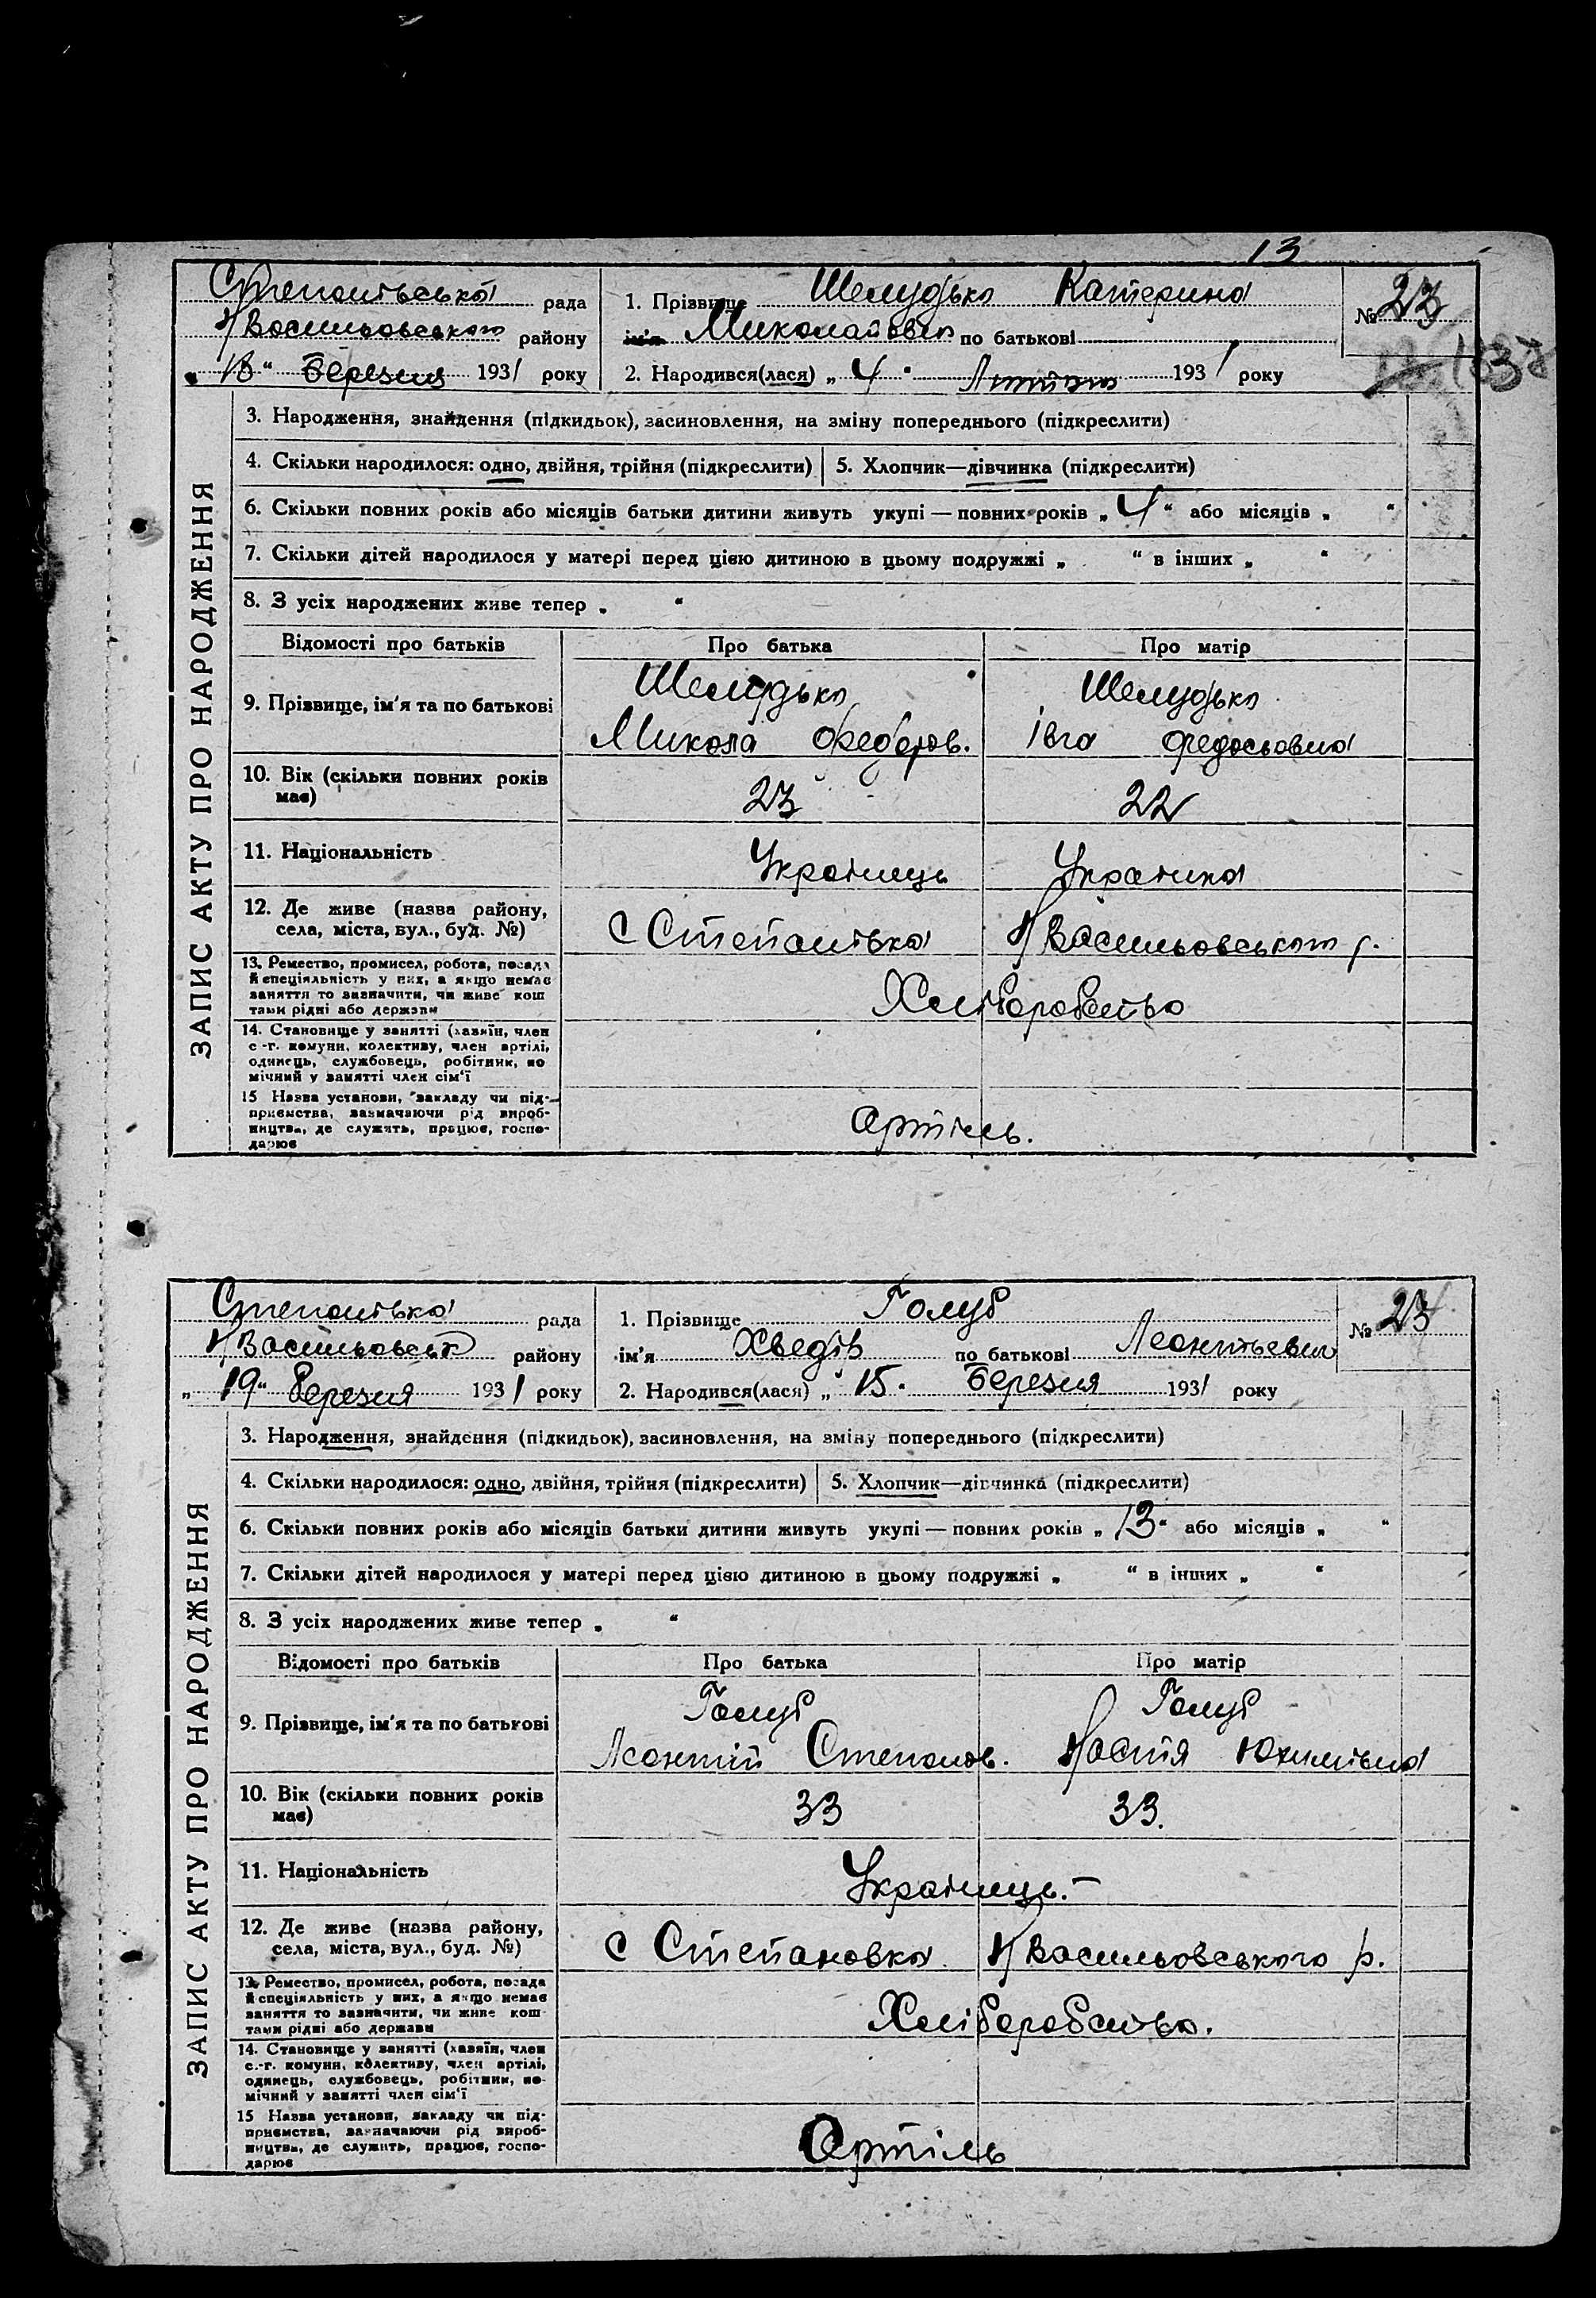 13
Степанівська рада
Н Васильовського району
„18“ Березня 1931 року
1. Прізвище Шелудько Катерина
ім'я Миколаївна по батькові
2. Народився(лася) „4“ Лютого 1931 року
№ 23
ЗАПИС АКТУ ПРО НАРОДЖЕННЯ
3. Народження, знайдення (підкидьок), засиновлення, на зміну попереднього (підкреслити)
4. Скільки народилося: одно, двійня, трійня (підкреслити) 5. Хлопчик—дівчинка (підкреслити)
6. Скільки повних років або місяців батьки дитини живуть укупі — повних років „4“ або місяців „ “
7. Скільки дітей народилося у матері перед цією дитиною в цьому подружжі „ “ в інших „ “
8. З усіх народжених живе тепер „ “
Відомості про батьків Про батька Про матір
9. Прізвище, ім'я та по батькові
Шелудько Шелудько
Микола Федоров. Івга Федосьовна
10. Вік (скільки повних років
має)
23 22
11. Національність Українець Українка
12. Де живе (назва району,
села, міста, вул., буд. №)
с Степанівка Н Васильовського р.
13. Ремество, промисел, робота, посада
й спеціяльність у них, а якщо немає
заняття то зазначити, чи живе кош
тами рідні або держави
Хліборобство
14. Становище у занятті (хазяїн, член
с-г. комуни, колективу, член артілі,
одинець, службовець, робітник, по
мічний у занятті член сім'ї
15 Назва установи, закладу чи під-
приємства, зазначаючи рід вироб-
ництва, де служить, працює, госпо-
дарює
Артіль.
Степанівка рада
Н Васильовськ району
„19“ березня 1931 року
1. Прізвище Голуб
ім'я Хведів по батькові Леонтьевич
2. Народився(лася) „15“ Березня 1931 року
№ 23
ЗАПИС АКТУ ПРО НАРОДЖЕННЯ
3. Народження, знайдення (підкидьок), засиновлення, на зміну попереднього (підкреслити)
4. Скільки народилося: одно, двійня, трійня (підкреслити) 5. Хлопчик—дівчинка (підкреслити)
6. Скільки повних років або місяців батьки дитини живуть укупі — повних років „13“ або місяців „ “
7. Скільки дітей народилося у матері перед цією дитиною в цьому подружжі „ “ в інших „ “
8. З усіх народжених живе тепер „ “
Відомості про батьків Про батька Про матір
9. Прізвище, ім'я та по батькові
Голуб Голуб
Леонтій Степанов. Настя Юхимівна
10. Вік (скільки повних років
має)
33 33.
11. Національність Українець.-
12. Де живе (назва району,
села, міста, вул., буд. №)
с Степановка Н Васильовського р.
13. Ремество, промисел, робота, посада
й спеціяльність у них, а якщо немає
заняття то зазначити, чи живе кош
тами рідні або держави
Хліборобство.
14. Становище у занятті (хазяїн, член
с.-г. комуни, колективу, член артілі,
одинець, службовець, робітник, по-
мічний у занятті член сім'ї
15 Назва установи, закладу чи під-
приємства, зазначаючи рід вироб-
ництва, де служить, працює, госпо-
дарює
Артіль